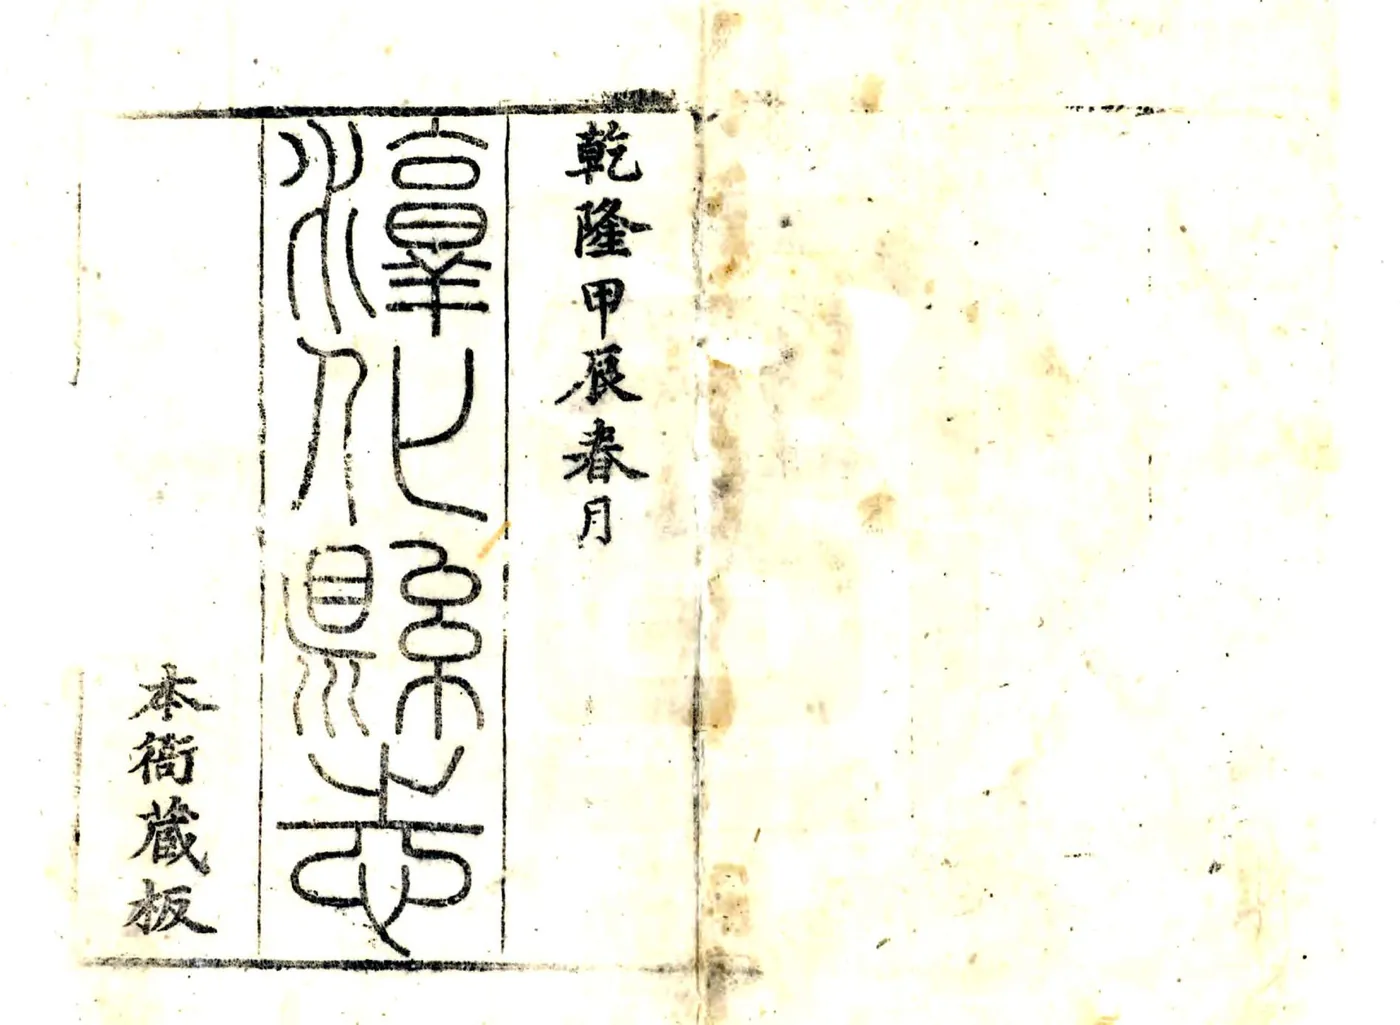 乾隆甲辰春月
淳化縣志
本衙藏板